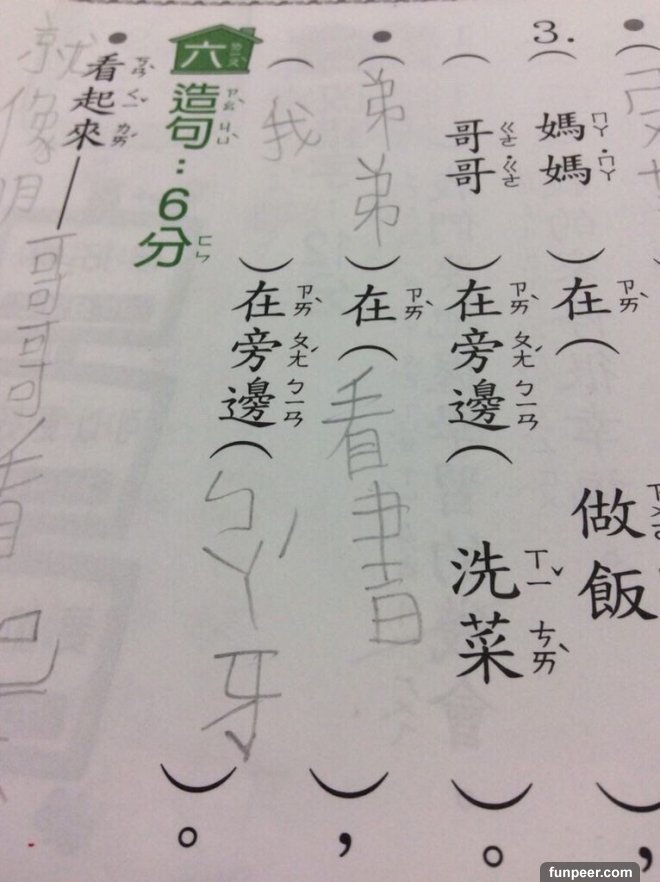 3.（媽媽）在（做飯），
（哥哥）在旁邊（洗菜）。
●（弟弟）在（看書），
（我）在旁邊（ㄅㄚˊ牙）。
六 造句：6分
●看起來——哥哥看起
就像明
funpeer.com